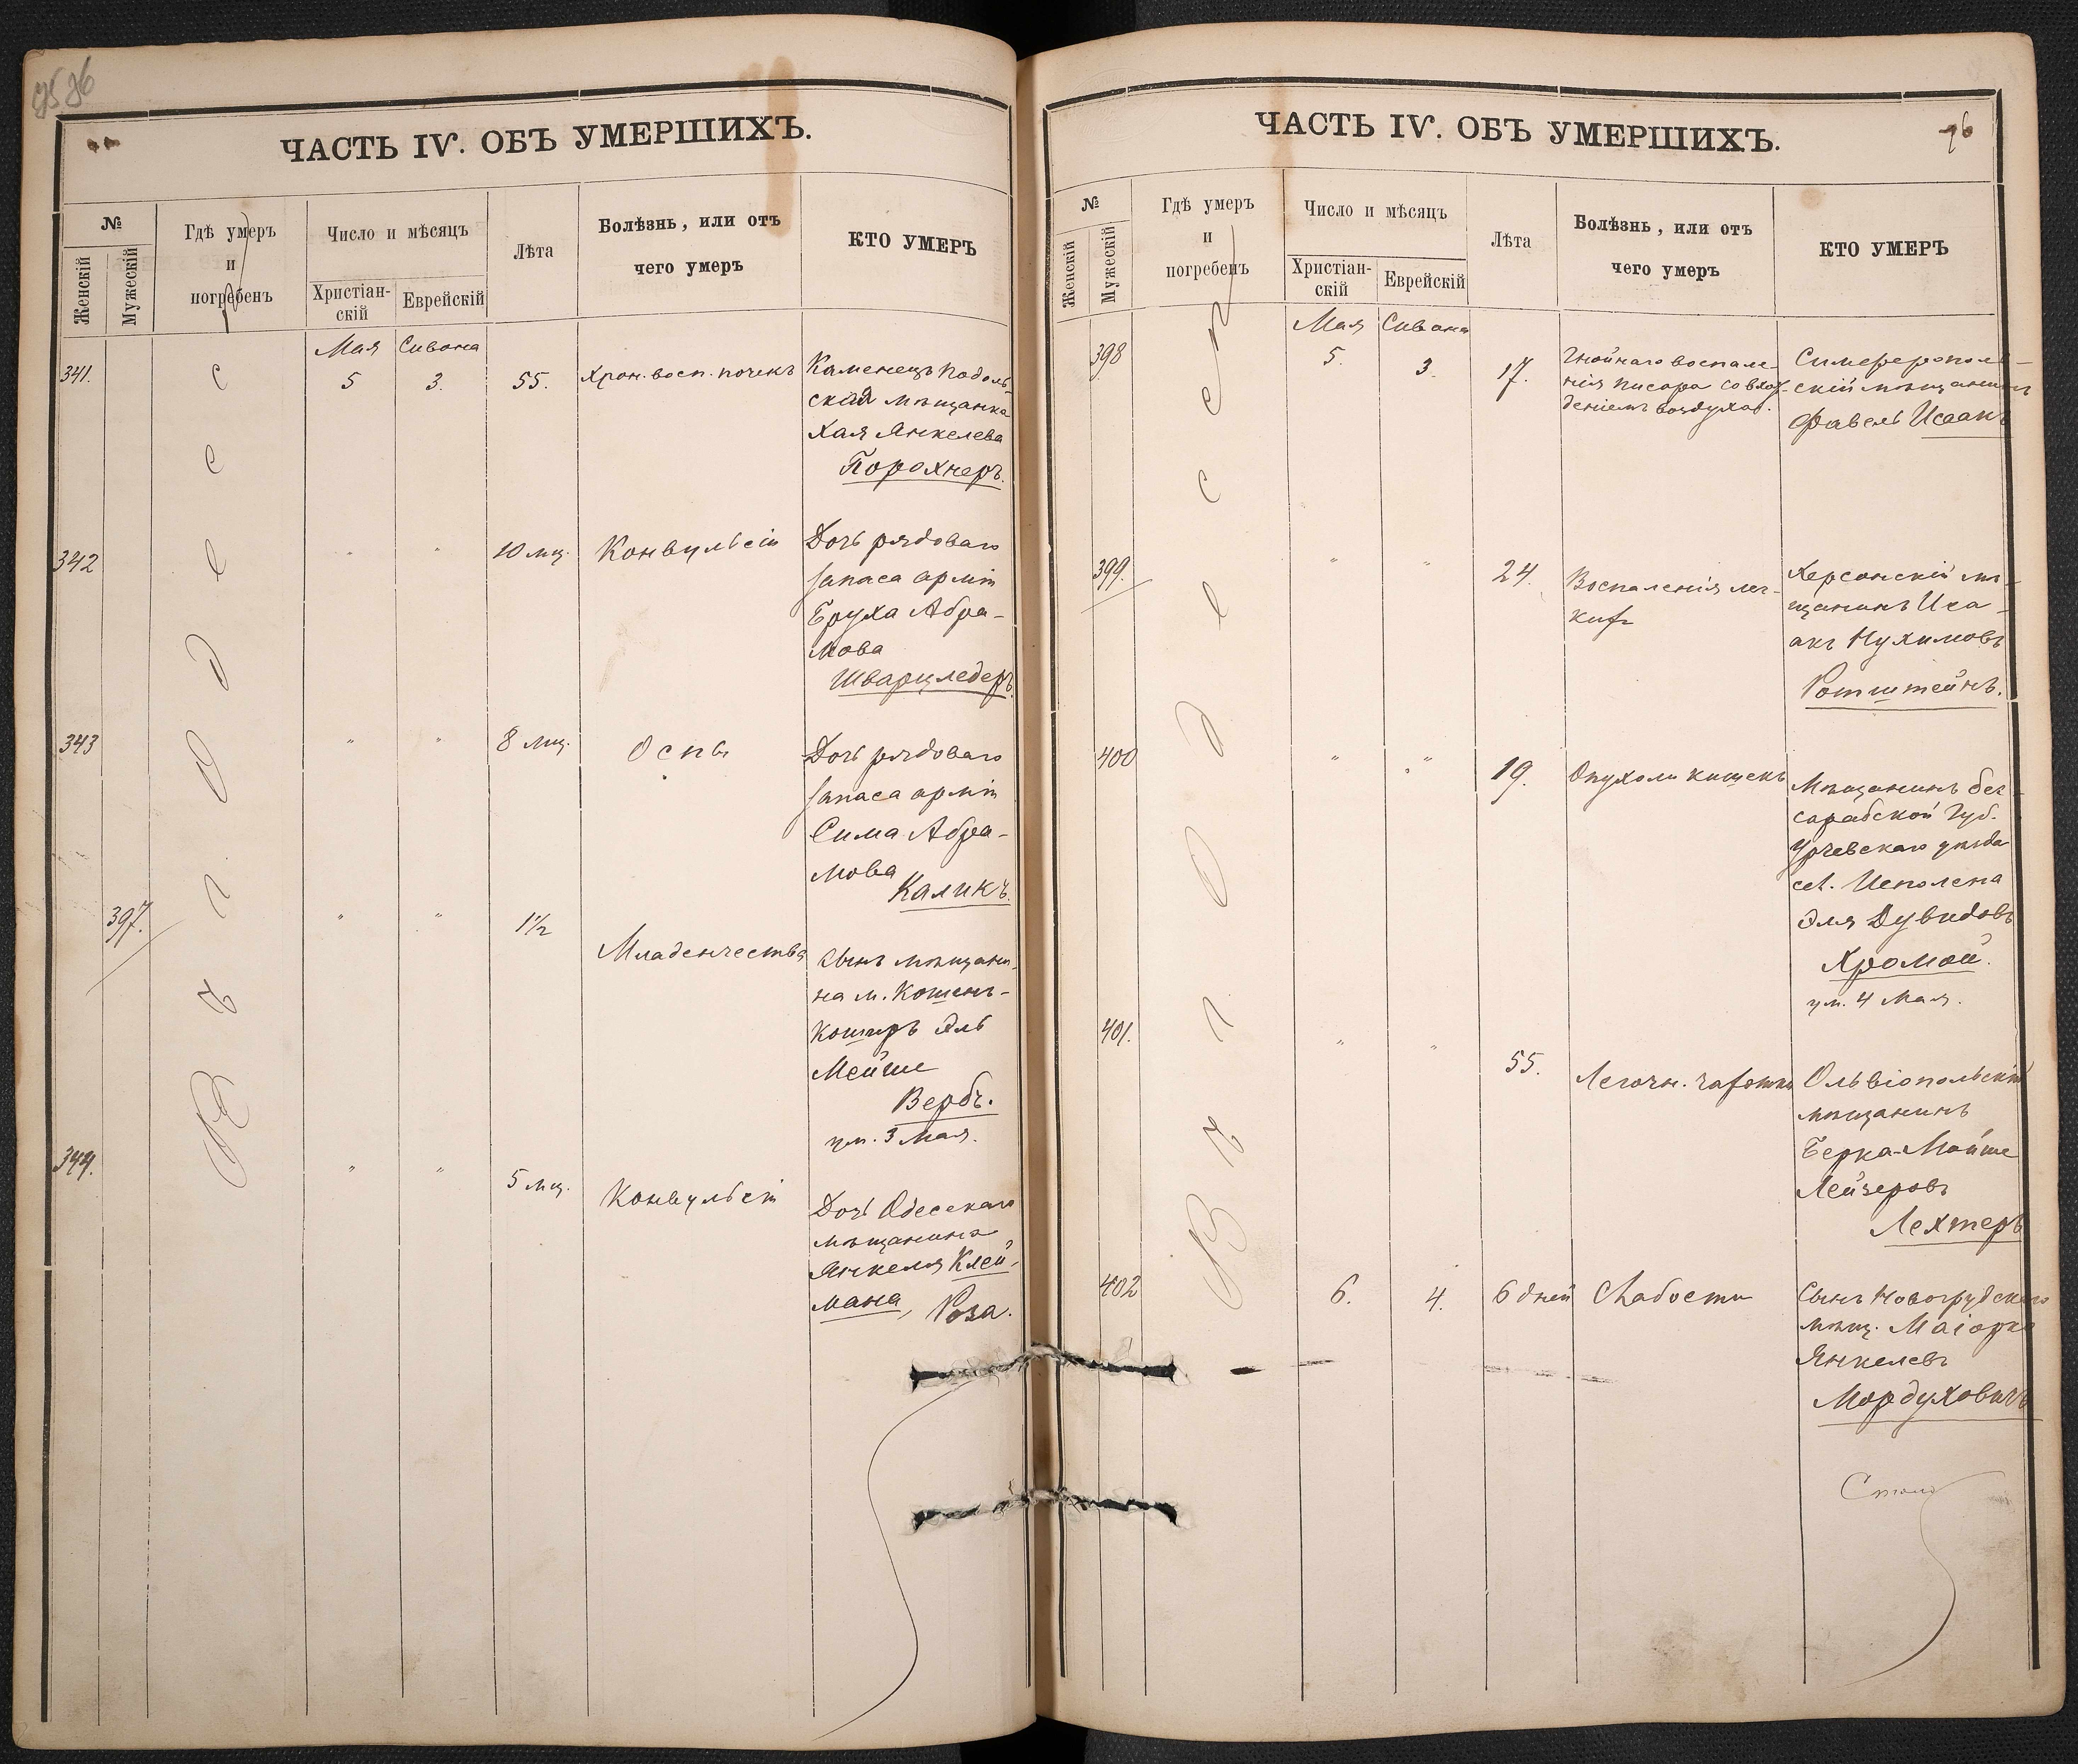 ЧАСТЬ IV. ОБЪ УМЕРШИХЪ.
№
Женскій
Мужескій
Гдѣ умеръ
и
погребенъ
Число и мѣсяцъ
Христіан-
скій
Еврейскій
Лѣта
Болѣзнь, или отъ
чего умеръ
КТО УМЕРЪ
Въ Одессѣ
Мая Сивана
341. 5 3. 55. Хрон. восп. почекъ
Каменецъ Подоль-
ская мѣщанка
Хая Янкелева
Порохнеръ.
342 " " 10 мц. Конвульсіи
Дочь рядоваго
запаса арміи
Бруха Абра-
мова
Шварцледеръ.
343 " " 8 мц. Оспы
Дочь рядоваго
запаса арміи
Сима Абра-
мова
Каликъ.
397. " " 1½ Младенчества
Сынъ мѣщани-
на м. Комень-
Коширъ Эль
Мейше
Вербъ.
ум. 3 Мая.
344. " " 5 мц. Конвульсіи
Дочь Одесскаго
мѣщанина
Янкеля Клей-
мана, Роза.
ЧАСТЬ IV. ОБЪ УМЕРШИХЪ.
96
№
Женскій
Мужескій
Гдѣ умеръ
и
погребенъ
Число и мѣсяцъ
Христіан-
скій
Еврейскій
Лѣта
Болѣзнь, или отъ
чего умеръ
КТО УМЕРЪ
Въ Одессѣ
Мая Сивана
398 5. 3. 17.
Гнойнаго воспале-
нія
воздуха.
Симферополь-
скій мѣщанинъ
Фавель Исаакъ
399. " " 24.
Воспаленія лег-
кихъ
Херсонскій мѣ-
щанинъ Иса-
акъ Нухимовъ
Ротштейнъ.
400 " " 19. Опухоли кишекъ
Мѣщанинъ бес-
сарабской Губ.
уѣзда
Эля Дувидовъ
Хромой.
ум. 4 Мая.
401. " " 55. Легочн. чахотки
Ольвіопольскій
мѣщанинъ
Берка-Мойше
Лейзеровъ
Лехтеръ
402 6. 4. 6 дней Слабости
Сынъ Новогрудскаго
мѣщ. Маіорко
Янкелевъ
Мордуховичъ